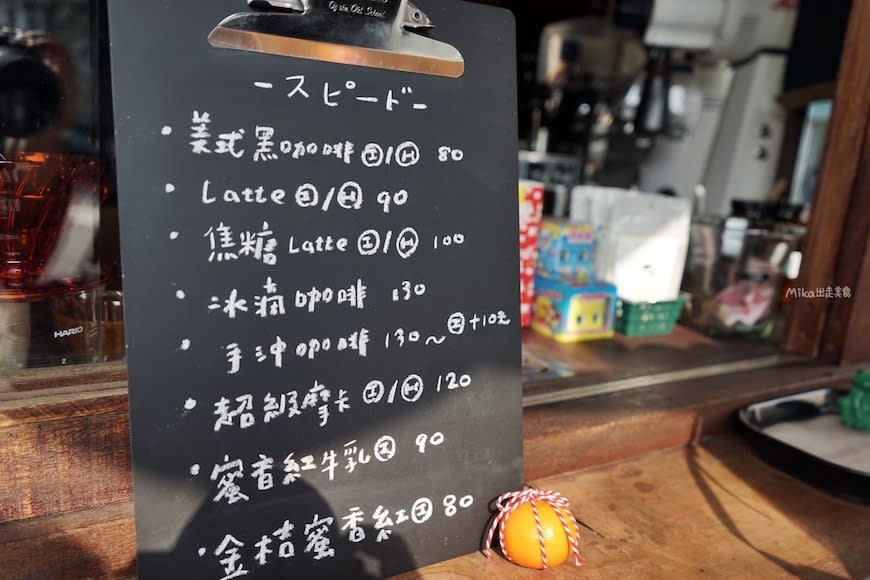 Of the Old School
ースピードー
・美式黑咖啡 Ⓘ/Ⓗ 80
・Latte Ⓘ/Ⓗ 90
・焦糖 Latte Ⓘ/Ⓗ 100
・冰滴咖啡 130
・手沖咖啡 130~ Ⓘ+10元
・超級摩卡 Ⓘ/Ⓗ 120
・蜜香紅牛乳 Ⓘ 90
・金桔蜜香紅 Ⓘ 80
HARIO
2
Mika出走美食